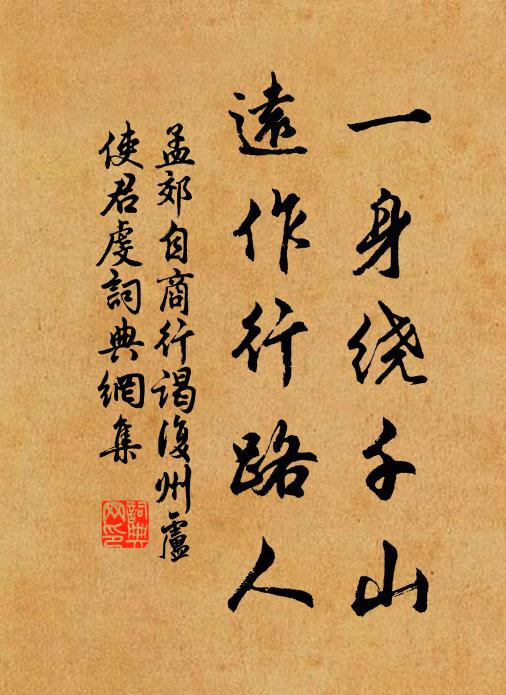 一身绕千山
遠作行路人
孟郊自商行谒復州盧
使君虔詞典網集
詞典
网印